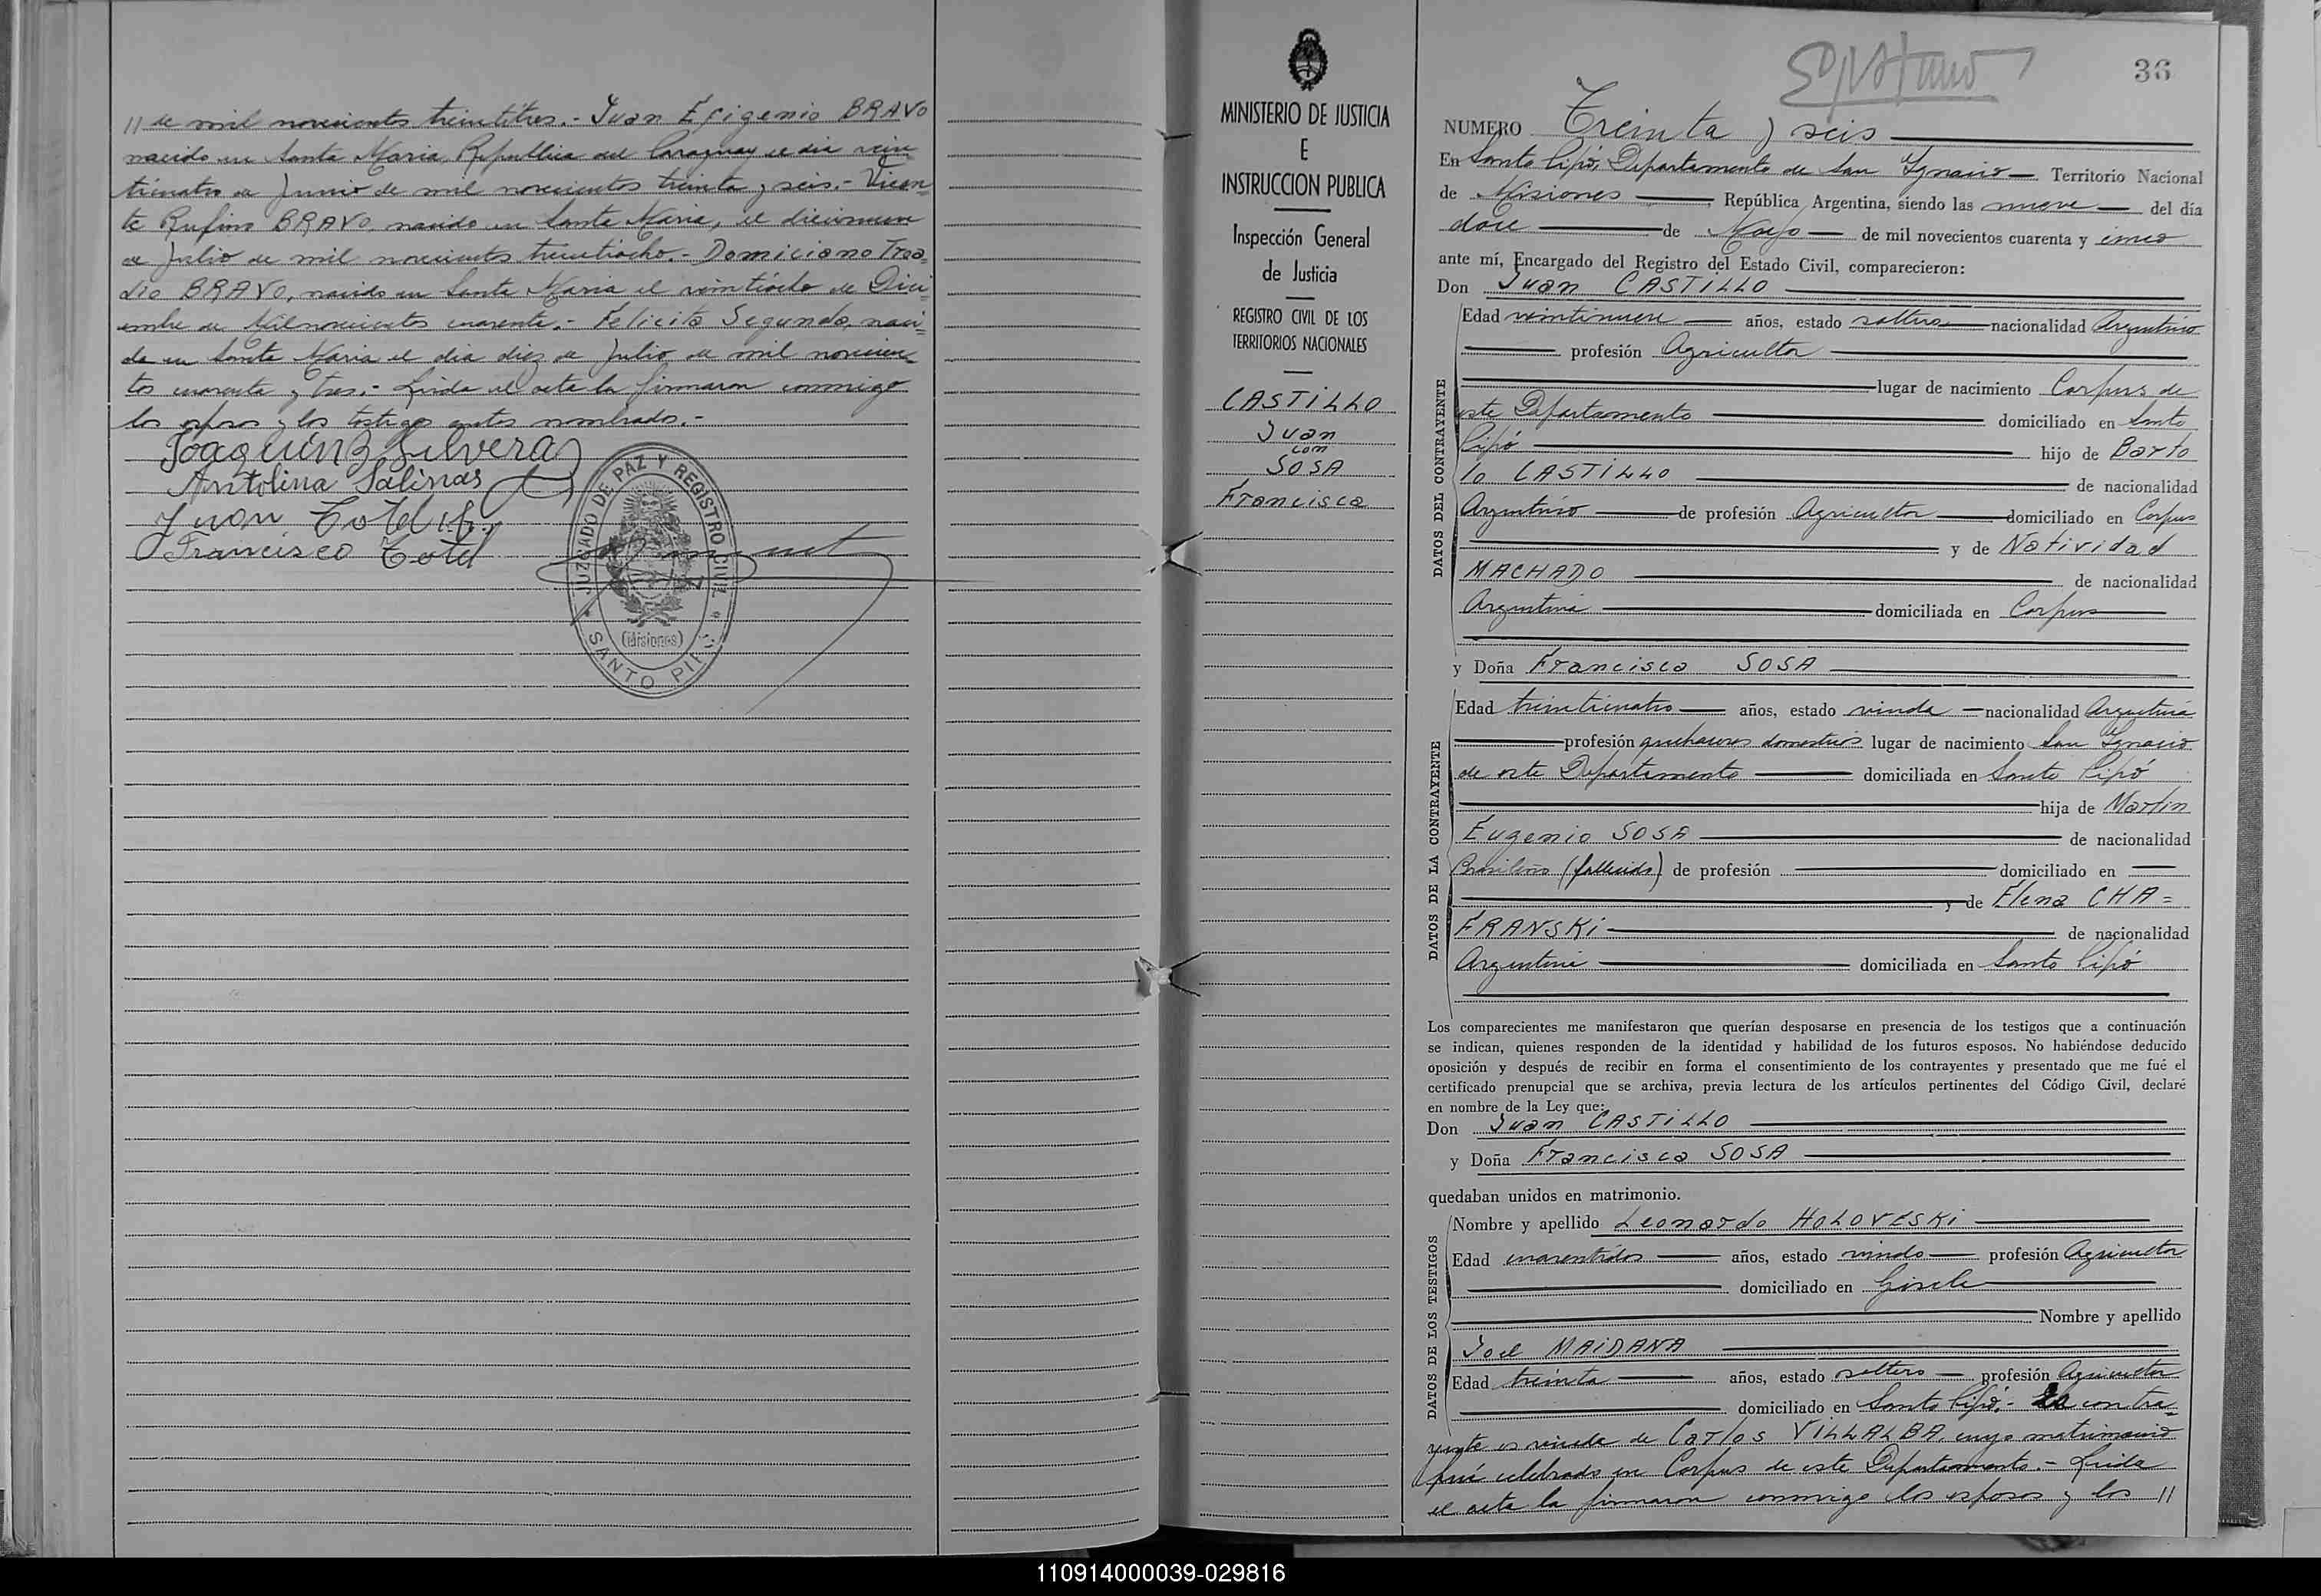 11 de mil novecientos treintitres.- Juan Efigenio BRAVO
nacido en Santa Maria, Republica del Paraguay el dia vein
ticuatro de Junio de mil novecientos treinta y seis.- Vicen
te Rufino BRAVO, nacido en Santa Maria, el diecinueve
de Julio de mil novecientos treintiocho.- Domiciano
dio BRAVO, nacido en Santa Maria el veintiocho de Dici
embre de Milnovecientos cuarenta.- Felicita Segunda, naci=
da en Santa Maria el dia diez de Julio de mil novecien
tos cuarenta y tres.- Leida el acta la firmaron conmigo
los esposos y los testigos antes nombrados.-
Joaquin Silvera
Antolina Salinas
Juan Cotel
Francisco Cotel
JUZGADO DE PAZ Y REGISTRO CIVIL
(Misiones)
SANTO PIPÓ
MINISTERIO DE JUSTICIA
E
INSTRUCCION PUBLICA
Inspección General
de Justicia
REGISTRO CIVIL DE LOS
TERRITORIOS NACIONALES
CASTILLO
Juan
con
SOSA
Francisca
36
NUMERO Treinta y seis
En Santo Pipó, Departamento de San Ygnacio Territorio Nacional
de Misiones, República Argentina, siendo las nueve del día
doce de Mayo de mil novecientos cuarenta y cinco
ante mí, Encargado del Registro del Estado Civil, comparecieron:
Don Juan CASTILLO
DATOS DEL CONTRAYENTE
Edad veintinueve años, estado soltero nacionalidad Argentino
profesión Agricultor
lugar de nacimiento Corpus de
este Departamento domiciliado en Santo
Pipó hijo de Barto
lo CASTILLO de nacionalidad
Argentino de profesión Agricultor domiciliado en Corpus
y de Natividad
MACHADO de nacionalidad
Argentina domiciliada en Corpus
y Doña Francisca SOSA
DATOS DE LA CONTRAYENTE
Edad treinticuatro años, estado viuda nacionalidad Argentina
profesión quehaceres domesticos lugar de nacimiento San Ygnacio
de este Departamento domiciliada en Santo Pipó
hija de Martin
Eugenio SOSA de nacionalidad
Brasileño (fallecido) de profesión domiciliado en
y de Elena CHA=
FRANSKI de nacionalidad
Argentina domiciliada en Santo Pipó
Los comparecientes me manifestaron que querían desposarse en presencia de los testigos que a continuación
se indican, quienes responden de la identidad y habilidad de los futuros esposos. No habiéndose deducido
oposición y después de recibir en forma el consentimiento de los contrayentes y presentado que me fué el
certificado prenupcial que se archiva, previa lectura de los artículos pertinentes del Código Civil, declaré
en nombre de la Ley que:
Don Juan CASTILLO
y Doña Francisca SOSA
quedaban unidos en matrimonio.
DATOS DE LOS TESTIGOS
Nombre y apellido Leonardo HOLOVESKI
Edad cuarentidos años, estado viudo profesión Agricultor
domiciliado en Gisela
Nombre y apellido
José MAIDANA
Edad treinta años, estado soltero profesión Agricultor
domiciliado en Santo Pipó.- La contra=
yente es viuda de Carlos VILLALBA, cuyo matrimonio
fué celebrado en Corpus de este Departamento.- Leida
el acta la firmaron conmigo los esposos y los 11
110914000039-029816